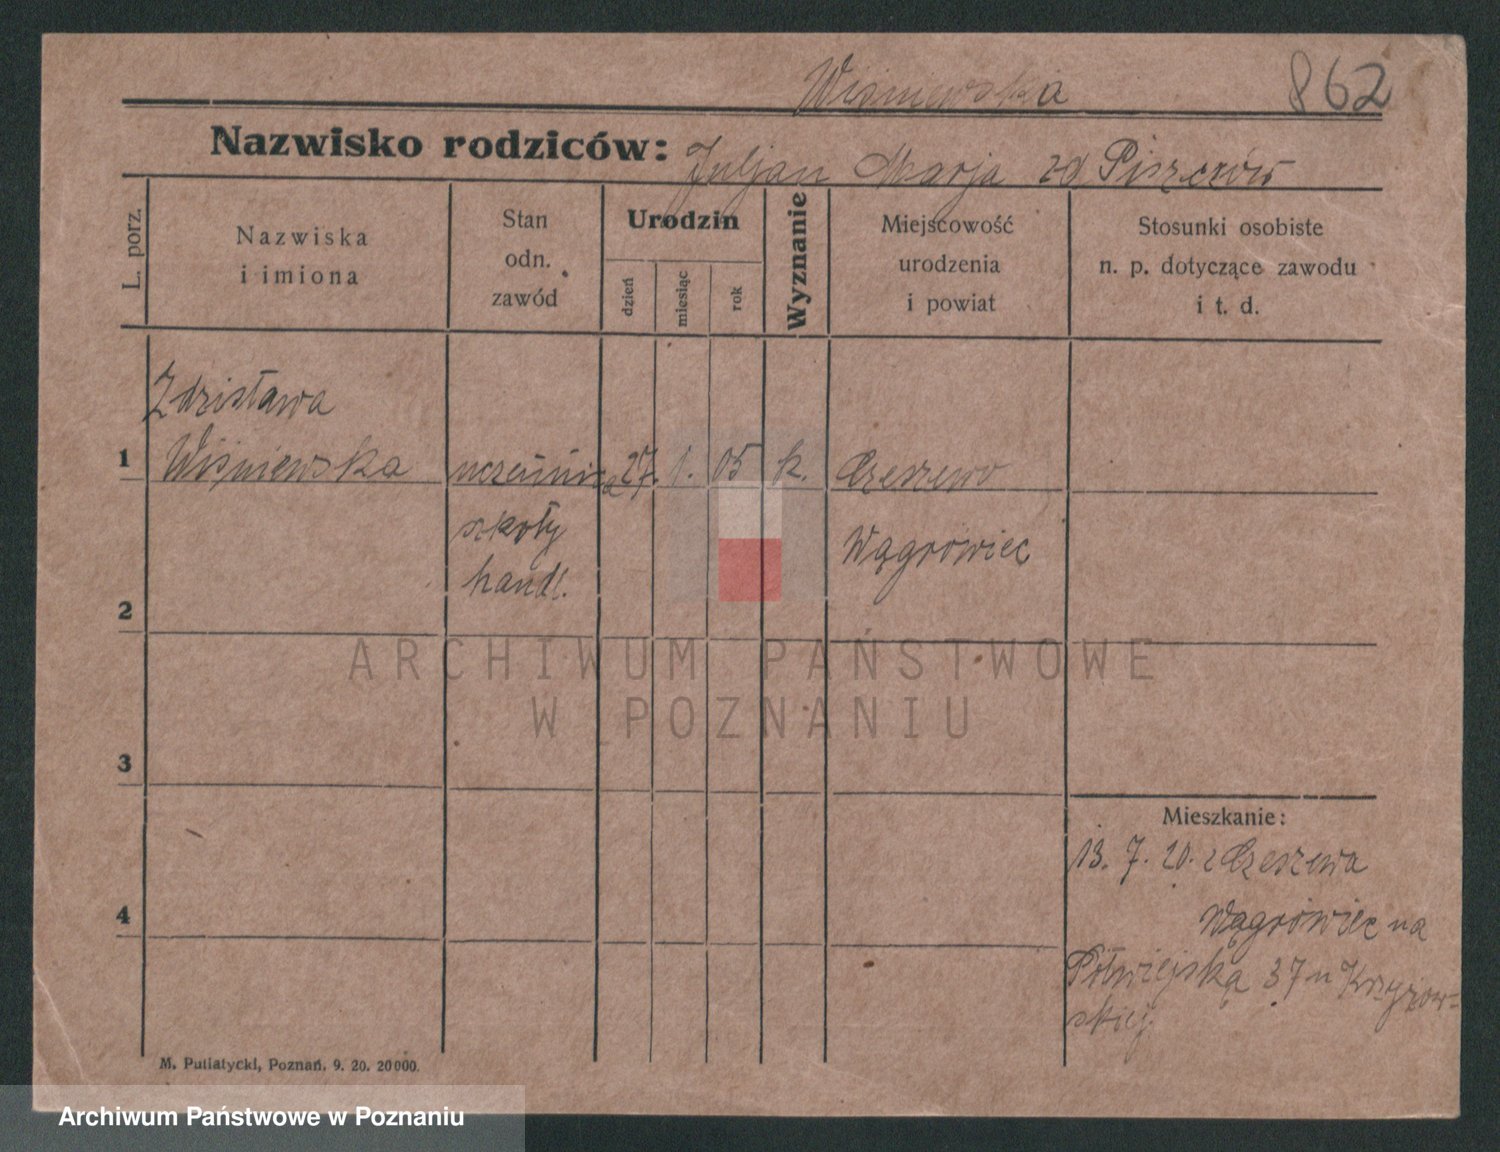 Wiśniewska 862
Nazwisko rodziców: Juljan Marja zd Piszczów
L. porz.
Nazwiska
i imiona
Stan
odn.
zawód
Urodzin
dzień
miesiąc
rok
Wyznanie
Miejscowość
urodzenia
i powiat
Stosunki osobiste
n. p. dotyczące zawodu
i t. d.
Zdzisława
1 Wiśniewska uczennica 27. 1. 05 k. Czeszewo
szkoły Wągrowiec
handl.
2
3
4
Mieszkanie:
13. 7. 20. z Czeszewa
Wągrowiec na
Półwiejską 37 u Krzyżow-
skiej.
M. Putiatycki, Poznań. 9. 20. 20000.
ARCHIWUM PAŃSTWOWE
W POZNANIU
Archiwum Państwowe w Poznaniu